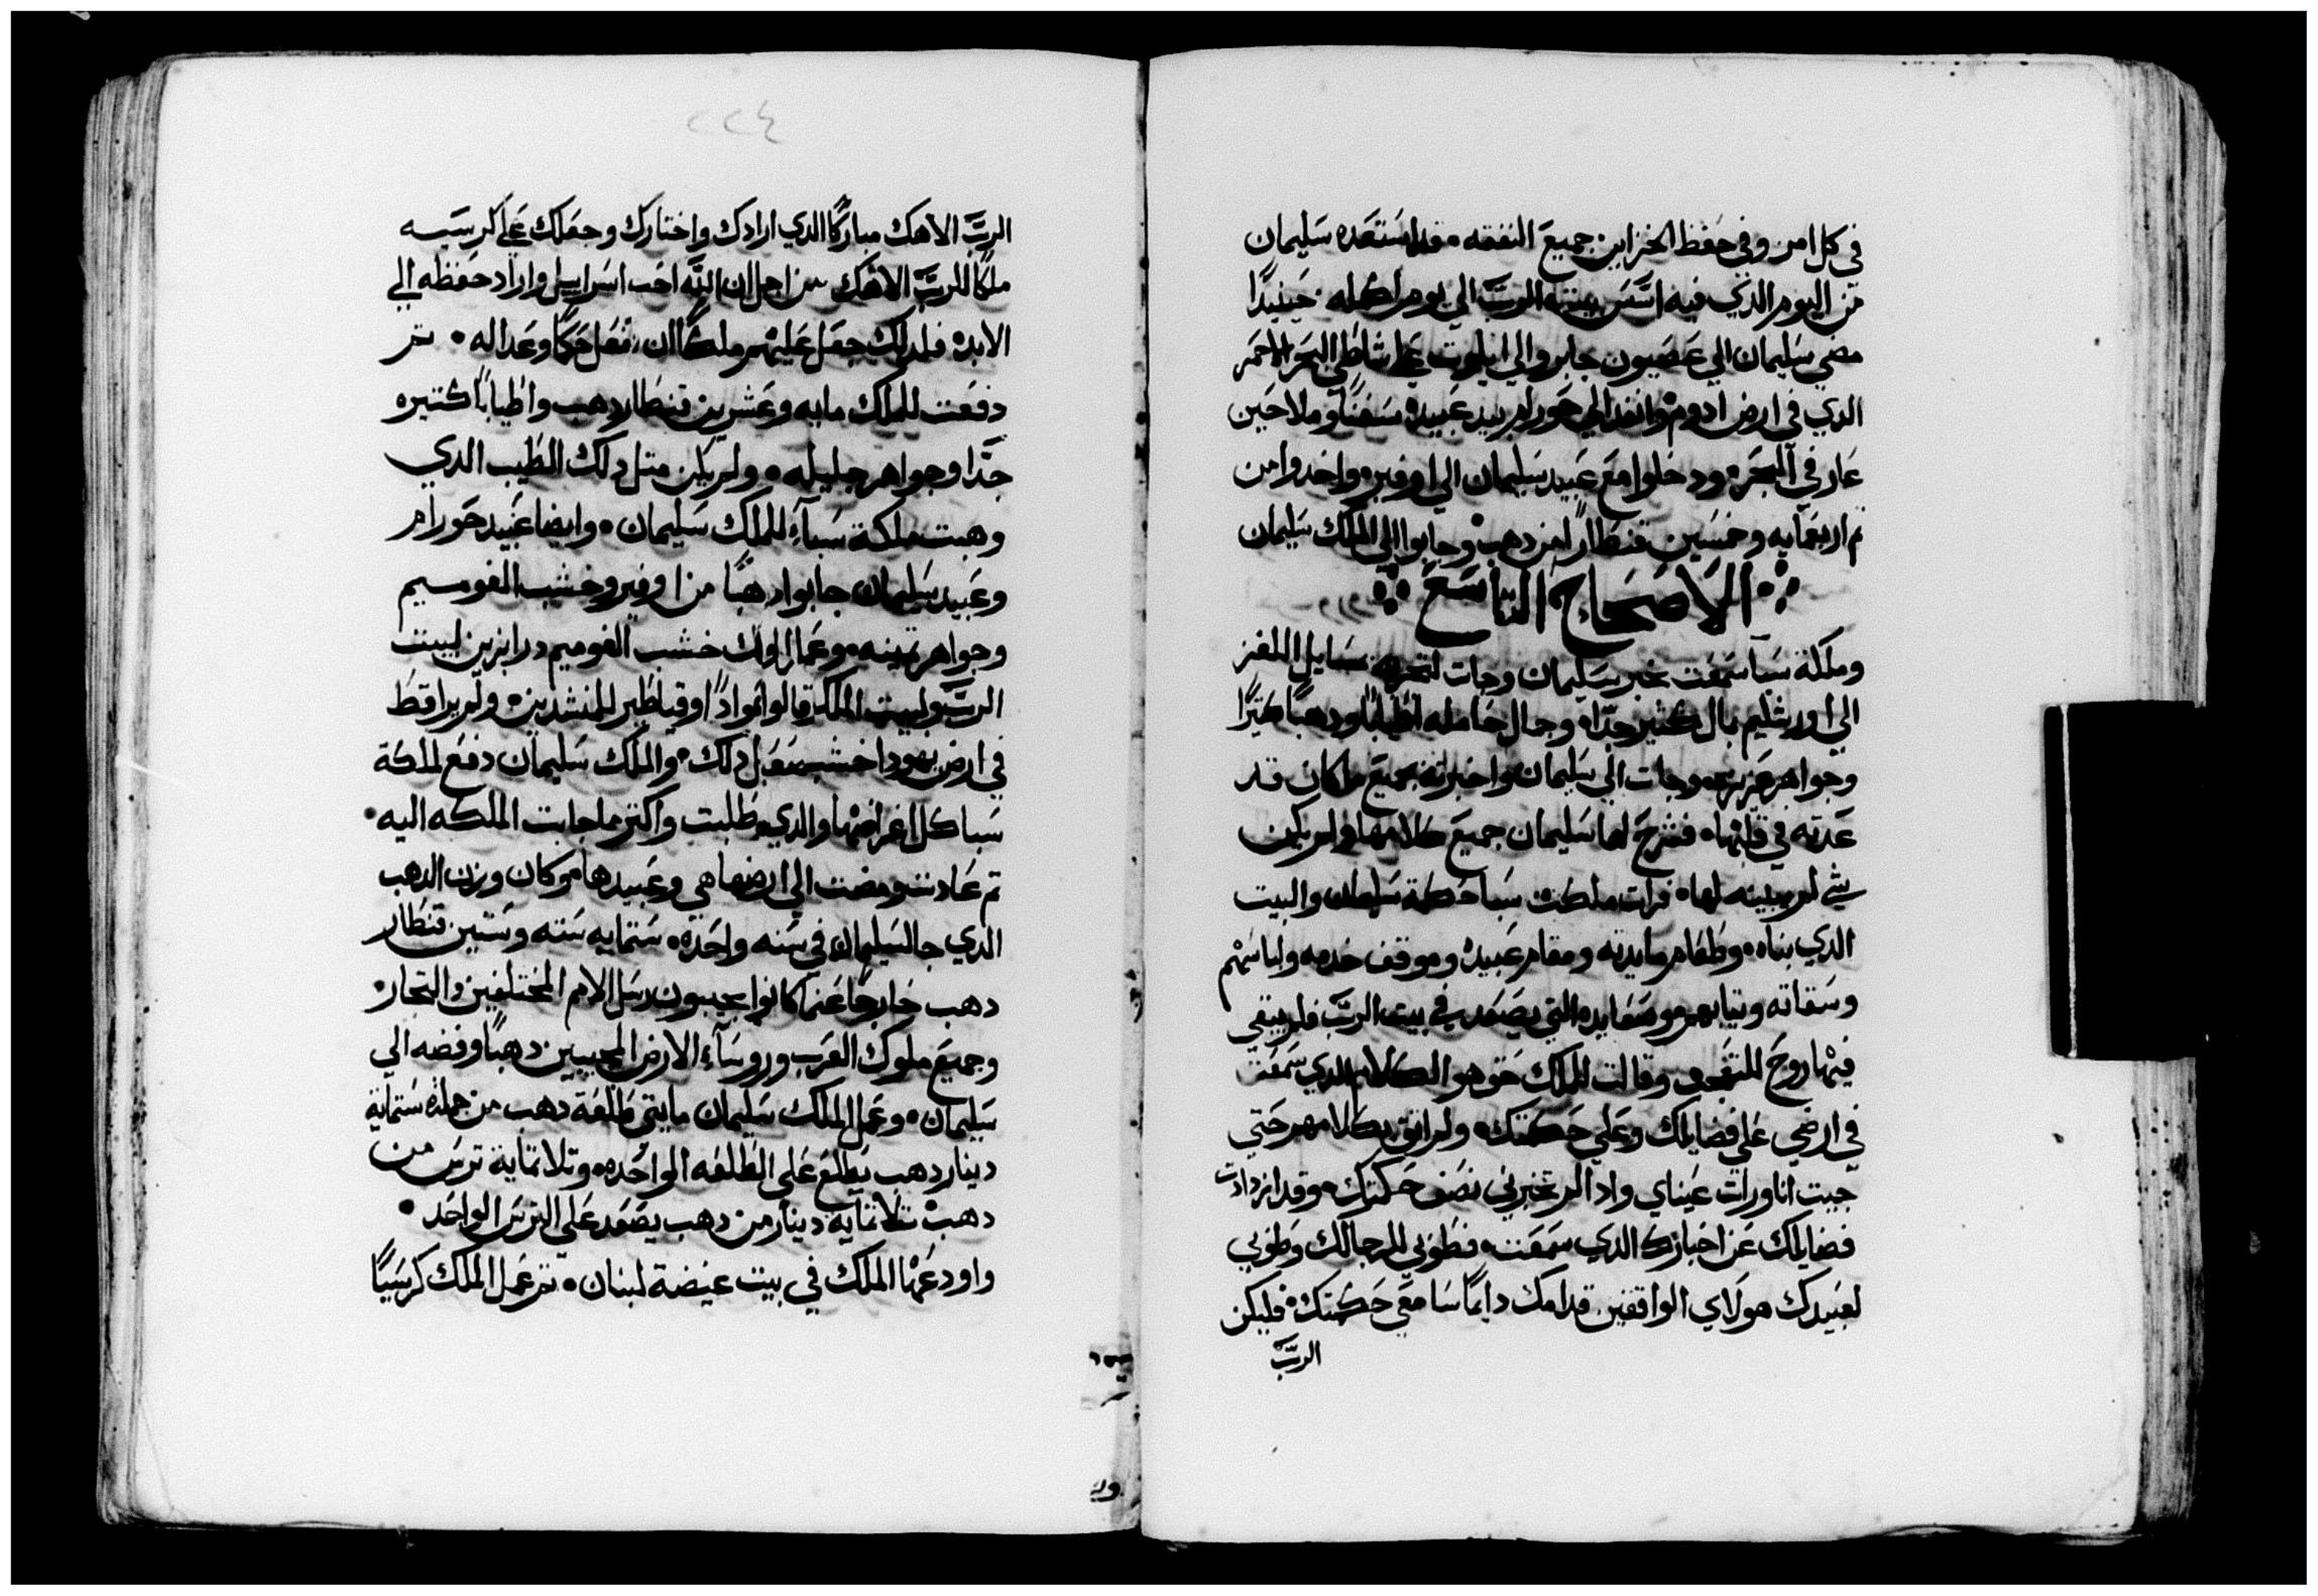 في كل امر وفي حفظ الخزاين جميع النفقه٠ فداستعده سليمان
من اليوم الذي فيه اسَّس بيته الربّ الي يوم اكمله٠ حينيدًا
مضي سليمان الي عصيون جابر والي ايلوت علي شاطي البحر الاحمر
الدي في ارض ادوم٠ وانفد الي حورام بيد عبيده سفنًا وملاحين
عارفي البحر٠ ودخلوا مع عبيد سليمان الي اوفير٠ واخدوا من
ثم اربعمايه وخمسين قنطارًا من دهب٠ وجابوا الي الملك سليمان
الاصحاح التاسع
وملكة سبا سمعت خبر سليمان وجات لتجربه بمسايل اللغز
الي اورشليم بمال كثير جدًّا٠ وجمال حامله اطيابًا ودهبًا كتيرًا
وجواهر عزيزه٠ وجات الي سليمان واخبرته بجميع ماكان قد
عدته في قلبها٠ فشرح لها سليمان جميع كلامها ولم يكن
شي لم يبينه لها٠ فرات ملكت سبا حكمة سليمان والبيت
الدي بناه٠ وطعام مايدته ومقام عبيده وموقف خدمه ولباسهم
وسقاته وتيابهم وصعايده التي يصعد في بيت الربّ فلم يبقي
فيها روح للتعجب وقالت للملك حق هو الكلام الدي سمعت
في ارضي علي فضايلك وعلي حكمتك٠ ولم اتق بكلامهم حتي
جيت انا ورات عيناي واد الم تخبرني نصف حكمتك٠ وقد ازدادت
فضايلك عن اخبارك الدي سمعت٠ فطوبي للرجالك وطوبي
لعبيدك هولاي الواقفين قدامك دايمًا سامعي حكمتك٠ فليكن
الربّ
٢٢٤
الربّ الاهك مباركًا الدي ارادك واختارك وجعلك علي كرسيه
ملكًا للربّ الاهك من اجل ان الله احب اسراييل واراد حفظه الي
الابد٠ فلدلك جعل عليهم ملكًا ان تفعل حكمًا وعداله٠ تم
دفعت للملك مايه وعشرين قنطار دهب واطيابًا كتيره
جدًّا وجواهر جليله٠ ولم يكن متل دلك الطيب الدي
وهبت ملكة سبآء للملك سليمان٠ وايضا عبيد حورام
وعبيد سليمان جابوا دهبًا من اوفير وخشب الغوسيم
وجواهر تمينه٠ وعمل الملك خشب الغوميم درابزين لبيت
الربّ ولبيت الملك وقيتاطير للمنشدين٠ ولم يرا قط
في ارض يهودا خشب متل دلك٠ والملك سليمان دفع لملكة
سبا كل اغراضها والدي طلبت واكتر ما جابت الملكه اليه٠
تم عادت ومضت الي ارضها هي وعبيدها٠ وكان وزن الدهب
الدي جا لسليمان في سنه واحده٠ ستمايه سته وستين قنطار
دهب خارجًا عما كانوا يجيبون رسل الامم المختلفين والتجار٠
وجميع ملوك العرب وروسآء الارض المجيبين دهبًا وفضه الي
سليمان٠ وعمل الملك سليمان مايتي طلعة دهب من جملة ستماية
دينار دهب يطلع علي الطلعه الواحده٠ وتلاتماية ترس من
دهب تلاتماية دينار من دهب يصعد علي الترس الواحد٠
واودعها الملك في بيت غيضة لبنان٠ تم عمل الملك كرسيًا